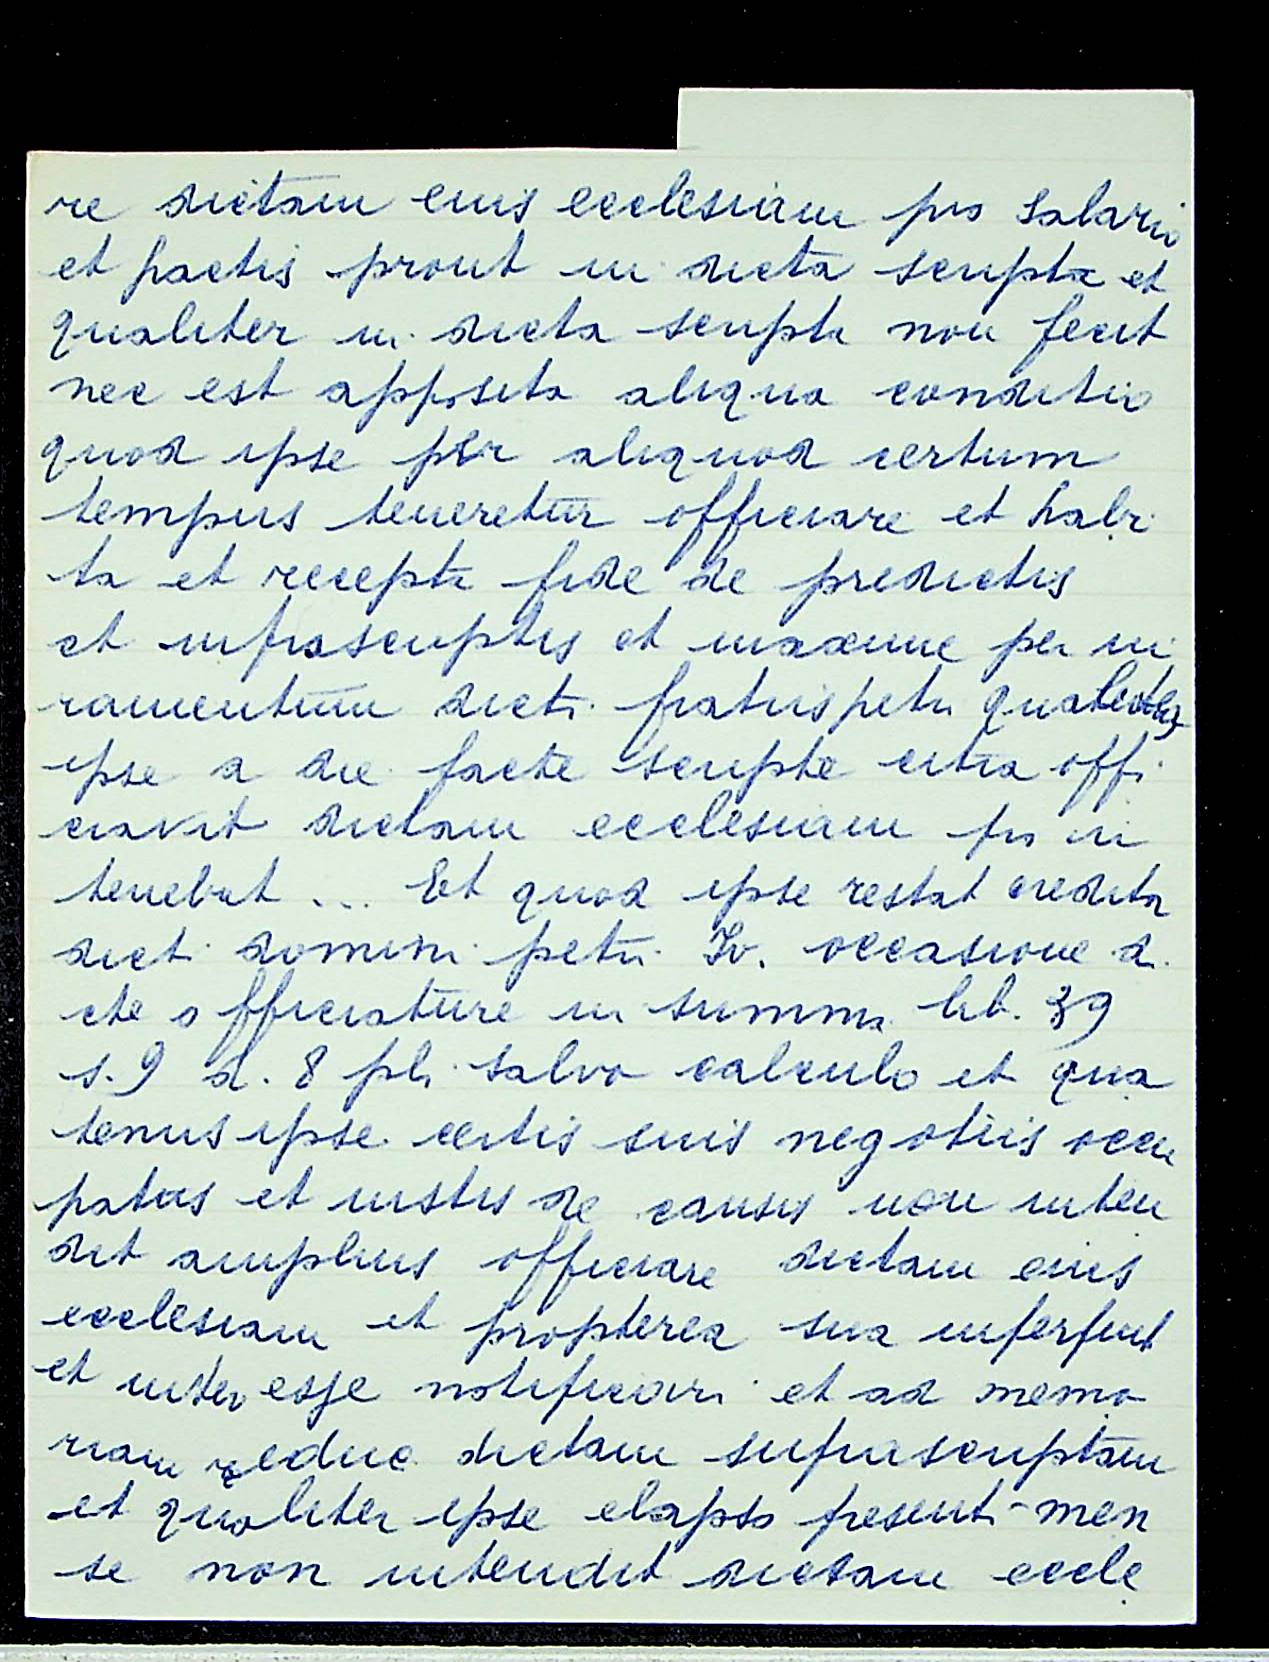 re dictam eius ecclesiam pro salario
et pactis prout in dicta scripta et
qualiter in dicta scripta non fecit
nec est apposita aliqua conditio
quod ipse per aliquod certum
tempus teneretur officiare et habi
ta et recepta fide de predictis
et infrascriptis et maxime per iu
ramentum dicti fratris petri qualiter
ipse a die facte scripte citra offi
ciavit dictam ecclesiam pro ut
tenebat ... Et quod ipse restat creditor
dicti domini petri Io. occasione di
cte officiature in summa lib. 39
s. 9 d. 8 pli. salvo calculo et qua
tenus ipse certis suis negotiis occu
patus et iustis de causis non inten
dit amplius officiare dictam eius
ecclesiam et propterea sua
et interesse notificari et ad memo
riam reduc. dictam suprascriptam
et qualiter ipse elapso presenti men
se non intendit dictam eccle